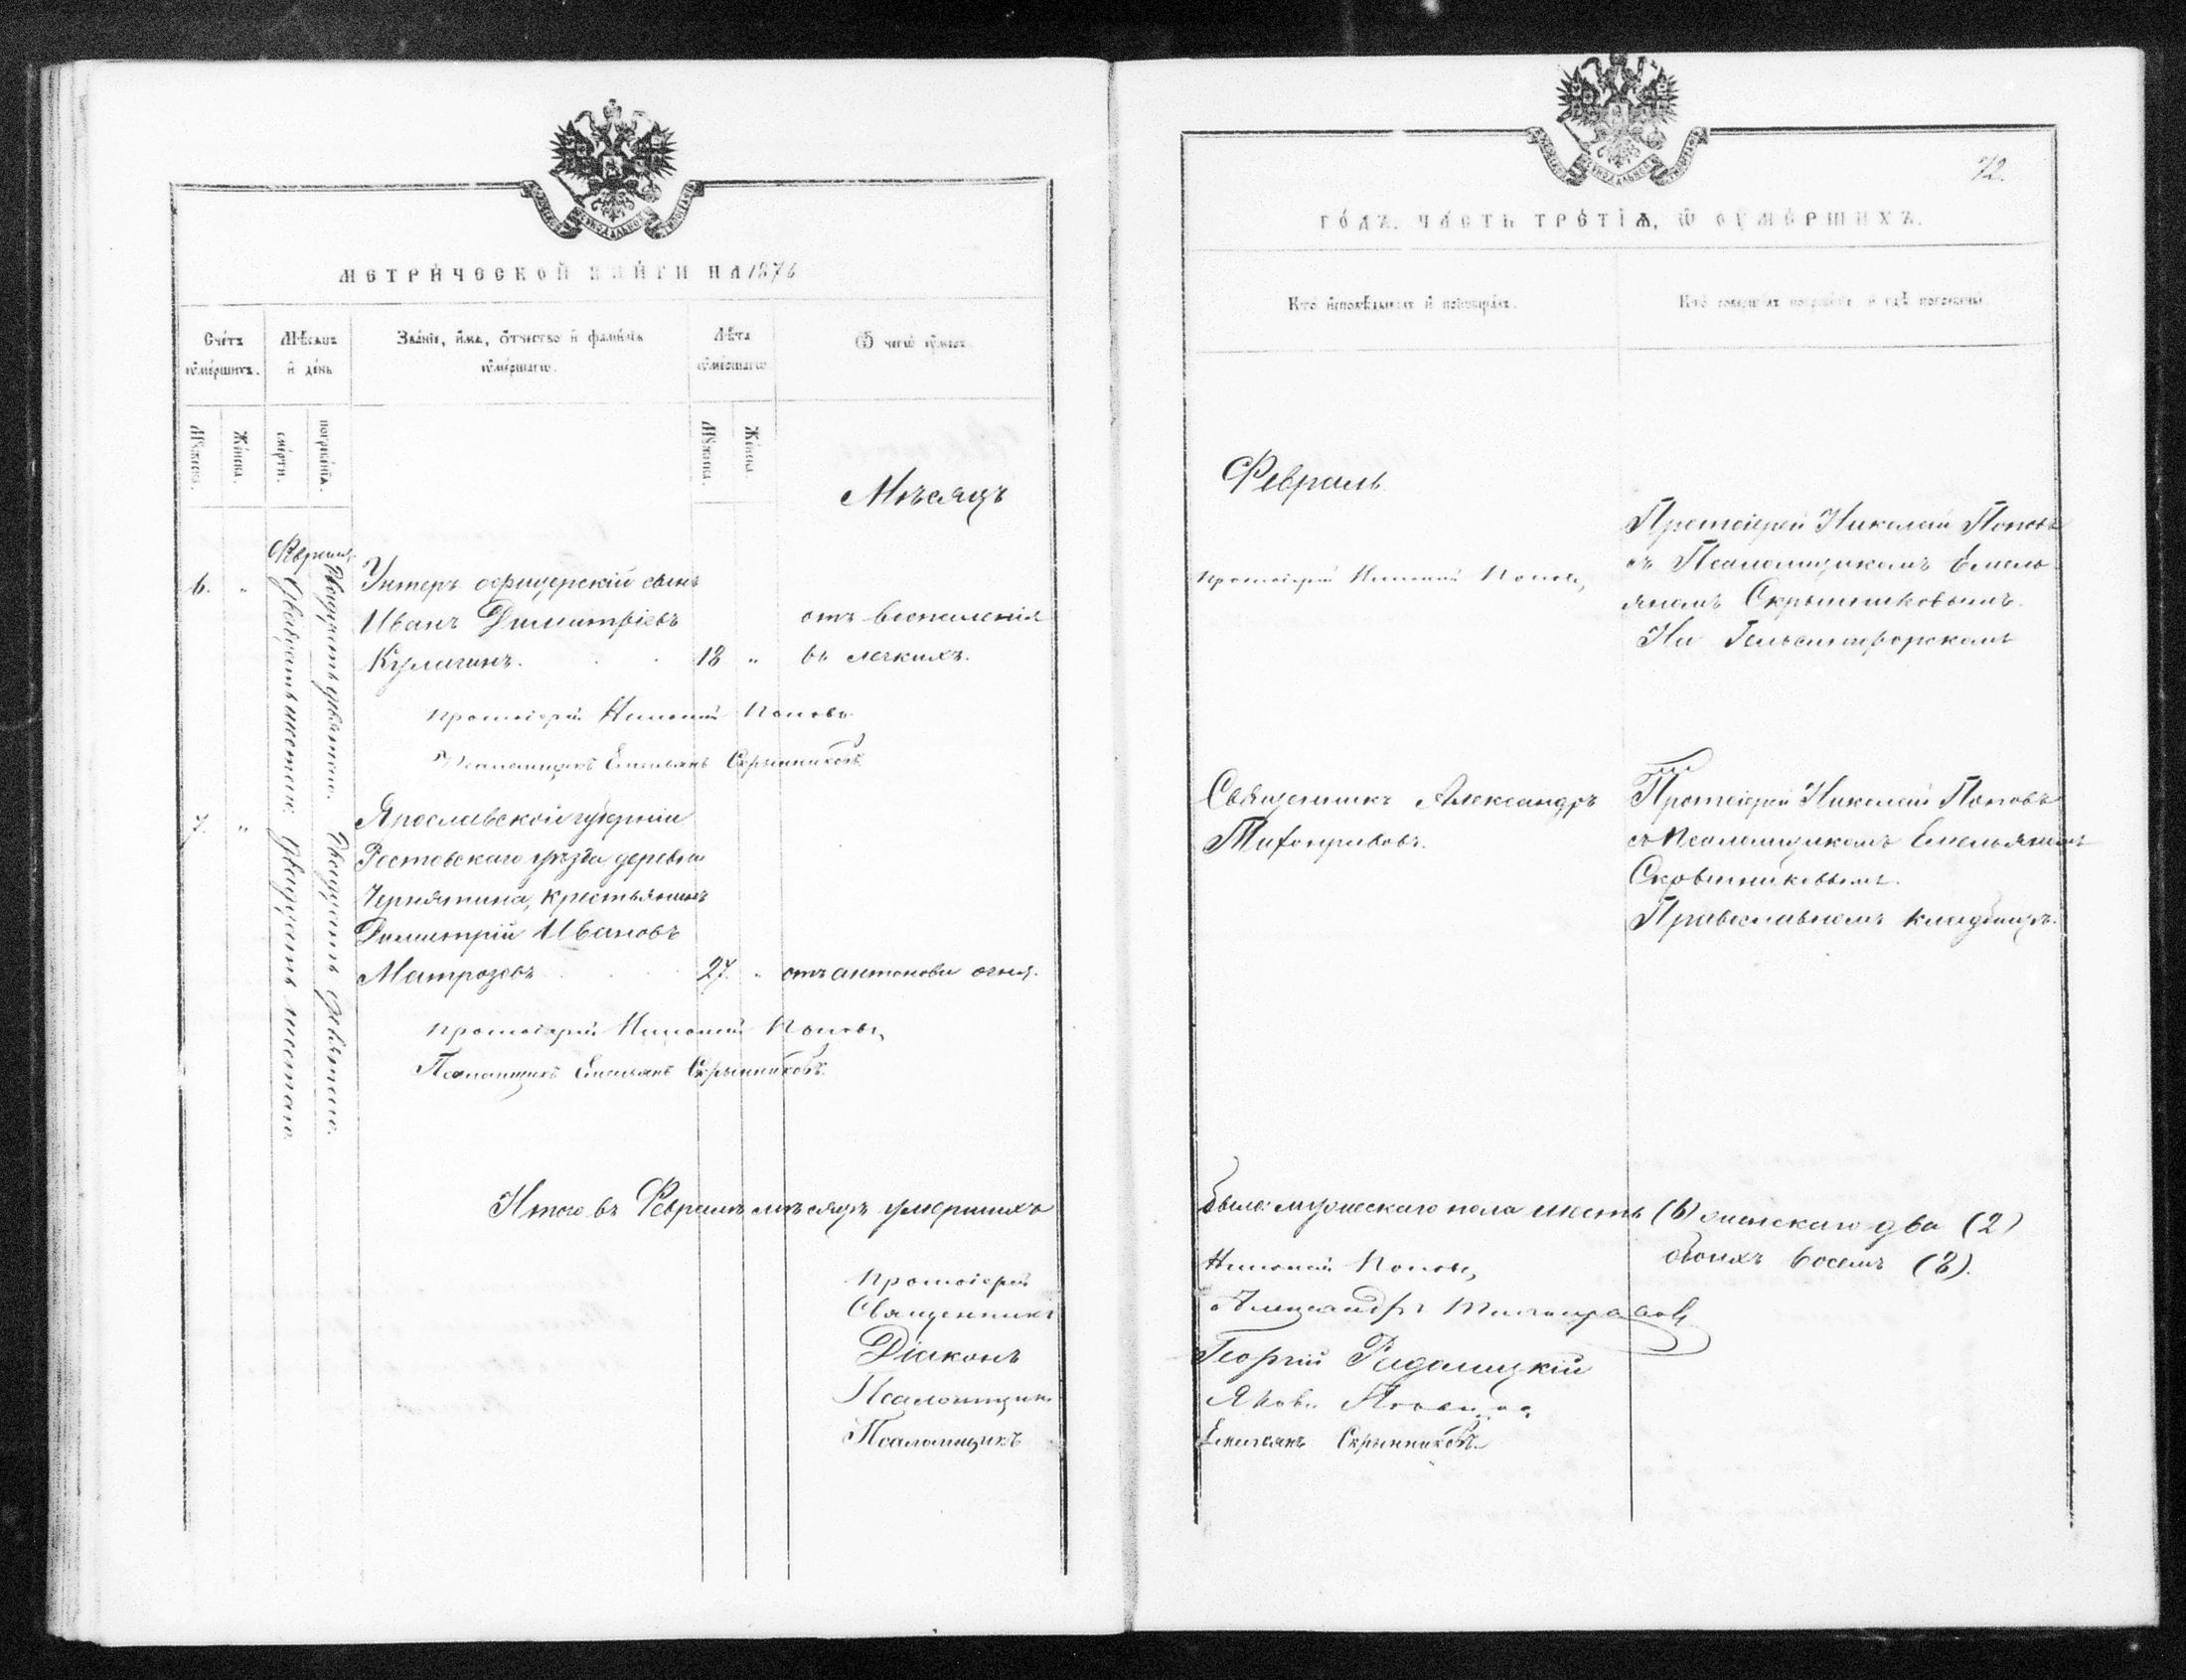 МЕТРИЧЕСКОЙ КНИГИ НА 1876
Счетъ умершихъ.
Мѣсяцъ и день
Званіе, имя, отчество и фамилія умершаго.
Лѣта умершаго
Ѿ чегѡ умеръ
Мужеска.
Женска.
смерти.
погребенія.
Мужеска.
Женска.
Мѣсяцъ
Февраля
6. "
двадцать шестаго.
двадцать девятаго.
Унтеръ офицерскій сынъ
Иванъ Димитріевъ
Кулагинъ. 18 "
отъ воспаленія
въ легкихъ.
Протоіерей Николай Поповъ
Псаломщикъ Емельянъ Скрынниковъ
7. "
двадцать шестаго.
двадцать девятаго.
Ярославской губерніи
Ростовскаго уѣзда деревни
Чернятина, крестьянинъ
Димитрій Ивановъ
Матрозовъ 27. " отъ антонова огня.
Протоіерей Николай Поповъ,
Псаломщикъ Емельянъ Скрынниковъ.
Итого въ Февралѣ мѣсяцѣ умершихъ
Протоіерей
Священникъ
Діаконъ
Псаломщикъ
Псаломщикъ
72.
ГОДЪ. ЧАСТЬ ТРЕТІѦ, Ѿ ОУМЕРШИХЪ.
Кто исповѣдывалъ и пріобщалъ.
Кто совершалъ погребеніе и гдѣ погребены
Февраль
Протоіерей Николай Поповъ,
Протоіерей Николай Поповъ
съ Псаломщикомъ Емель
яномъ Скрынниковымъ.
На Гельсингфорскомъ
Священникъ Александръ
Протоіерей Николай Поповъ
съ Псаломщикомъ Емельяномъ
Скрынниковымъ.
Православномъ кладбищѣ.
было: мужескаго пола шесть (6) женскаго два (2)
обоихъ восемь (8).
Николай Поповъ,
Александръ
Георгій
Яковъ
Емельянъ Скрынниковъ.